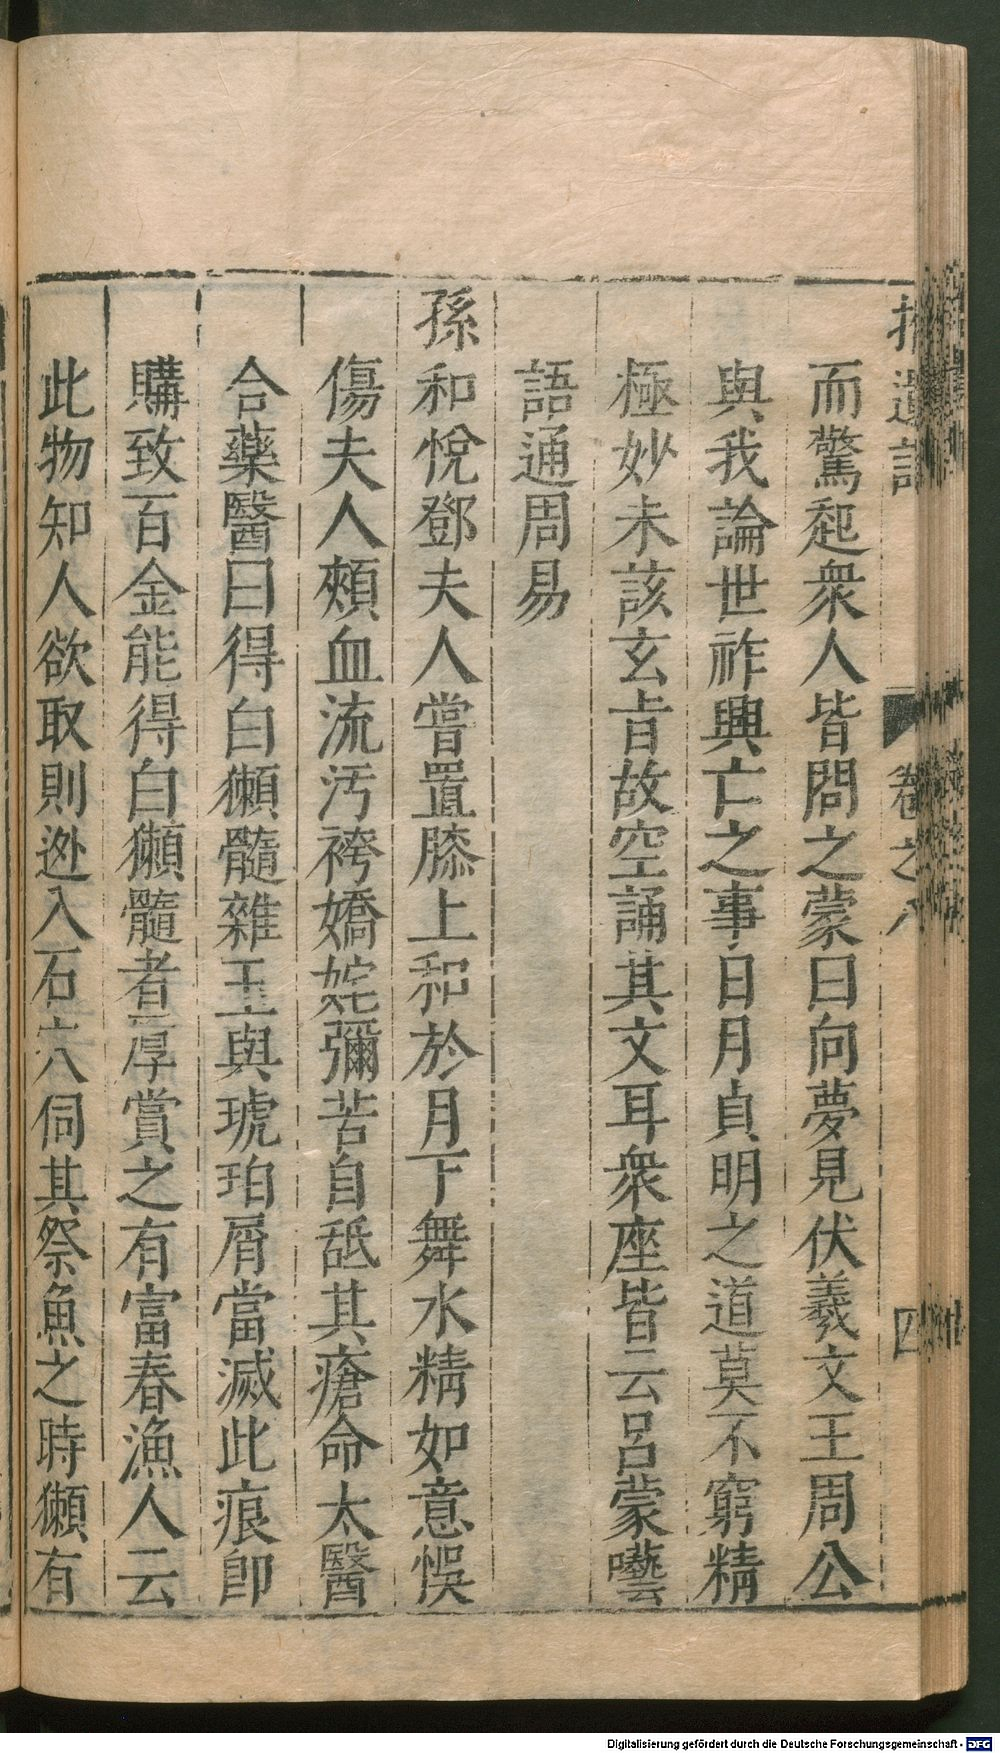 拾遺記 卷之八 四
而驚起衆人皆問之蒙曰向夢見伏羲文王周公
與我論世祚興亡之事日月貞明之道莫不窮精
極妙未該玄旨故空誦其文耳衆座皆云呂蒙囈
語通周易
孫和悅鄧夫人嘗置膝上和於月下舞水精如意悞
傷夫人頰血流汚袴嬌姹彌苦自舐其瘡命太醫
合藥醫曰得白獺髓雜玉與琥珀屑當滅此痕卽
購致百金能得白獺髓者厚賞之有富春漁人云
此物知人欲取則逃入石穴伺其祭魚之時獺有
Digitalisierung gefördert durch die Deutsche Forschungsgemeinschaft - DFG